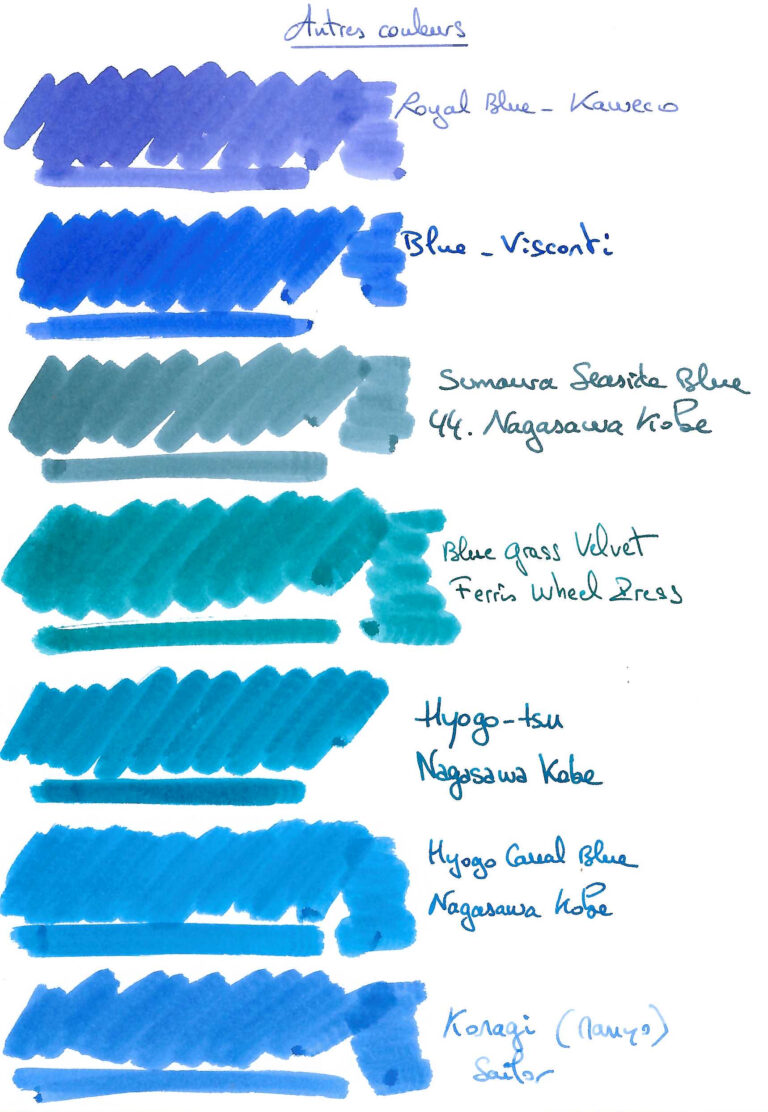 Autres couleurs
Royal Blue - Kaweco
Blue - Visconti
Sumaura Seaside Blue
44. Nagasawa Kobe
Blue grass Velvet
Ferris Wheel Press
Hyogo-tsu
Nagasawa Kobe
Hyogo Canal Blue
Nagasawa Kobe
Konagi (Manyo)
Sailor